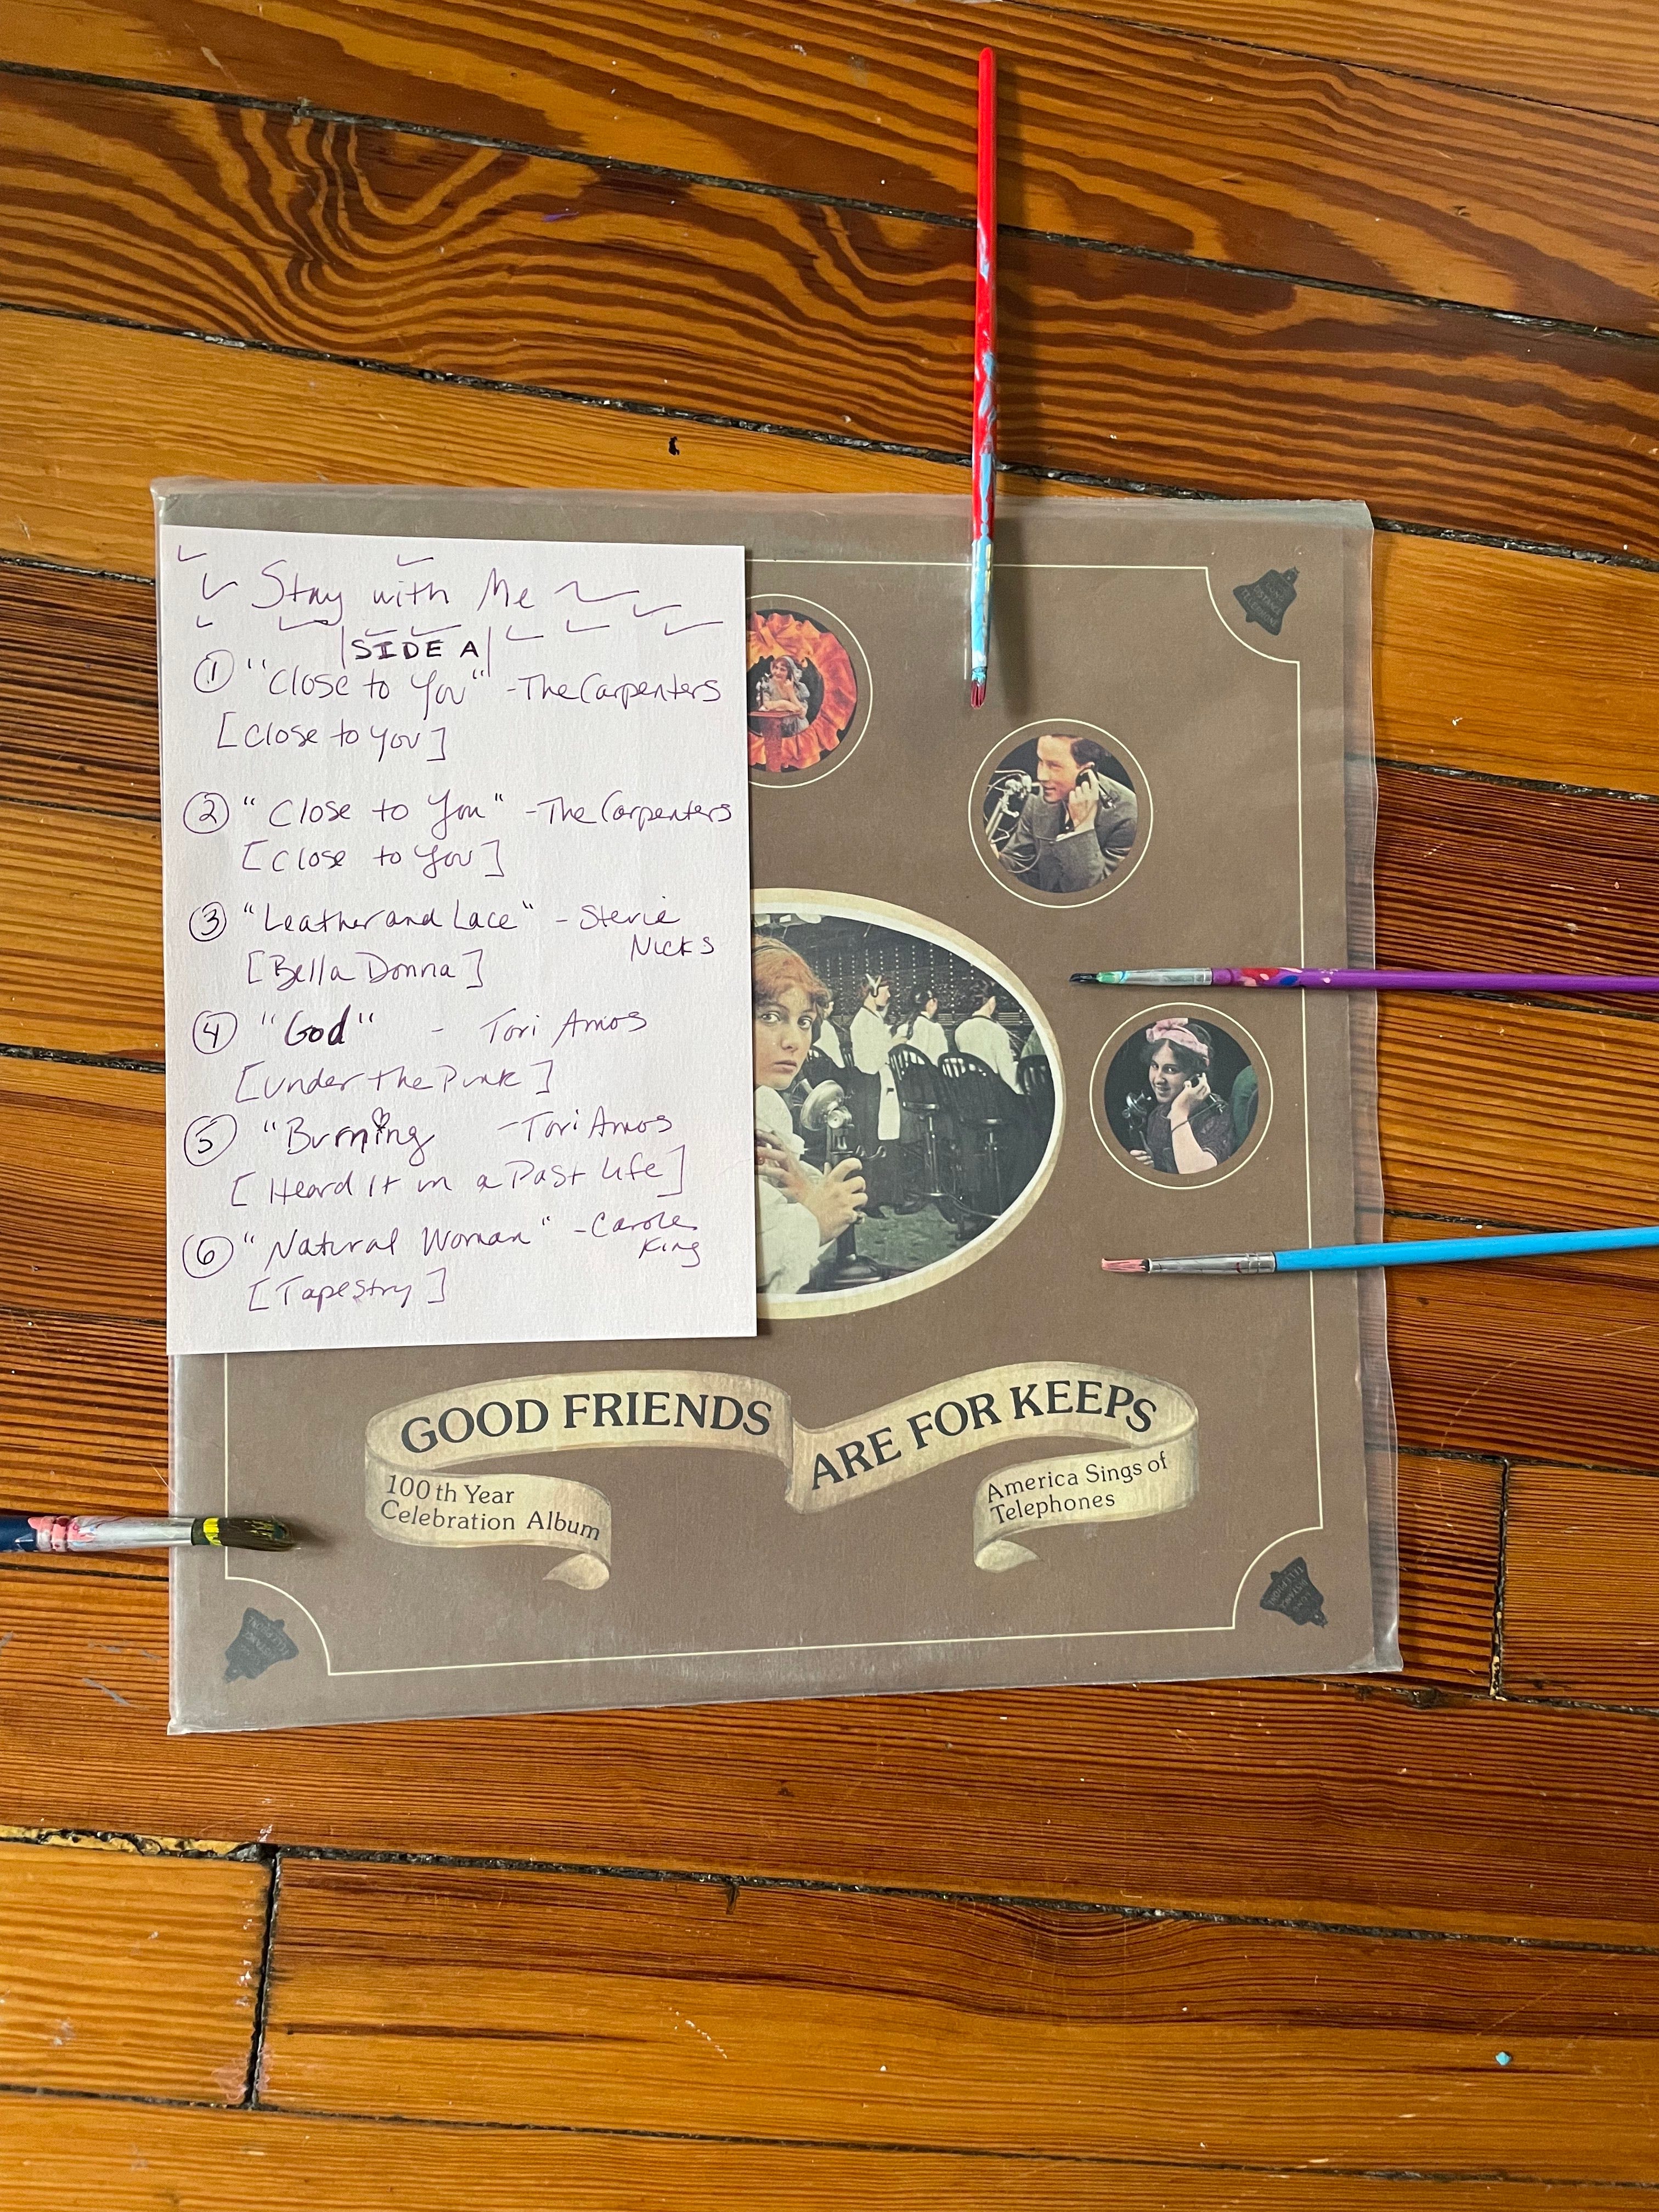 Stay with Me
SIDE A
① "Close to You" - The Carpenters
[Close to You]
② "Close to You" - The Carpenters
[Close to You]
③ "Leather and Lace" - Stevie
Nicks
[Bella Donna]
④ "God" - Tori Amos
[Under the Pink]
⑤ "Burning - Tori Amos
[Heard It in a Past Life]
⑥ "Natural Woman" - Carole
King
[Tapestry]
GOOD FRIENDS ARE FOR KEEPS
100th Year
Celebration Album
America Sings of
Telephones
LONG
DISTANCE
TELEPHONE